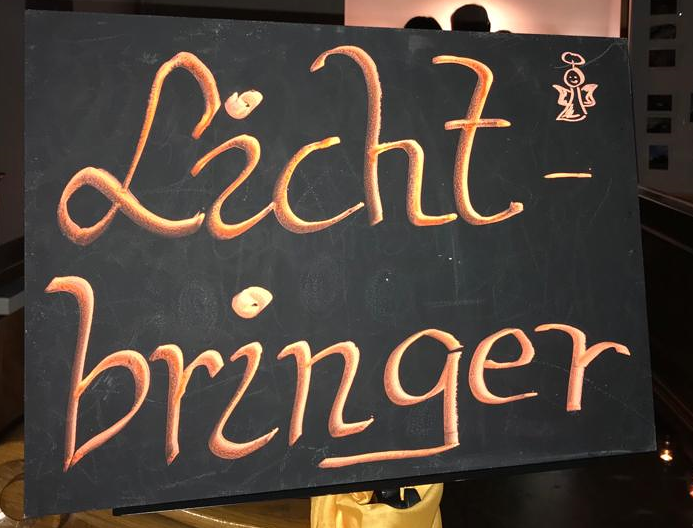 Licht-
bringer